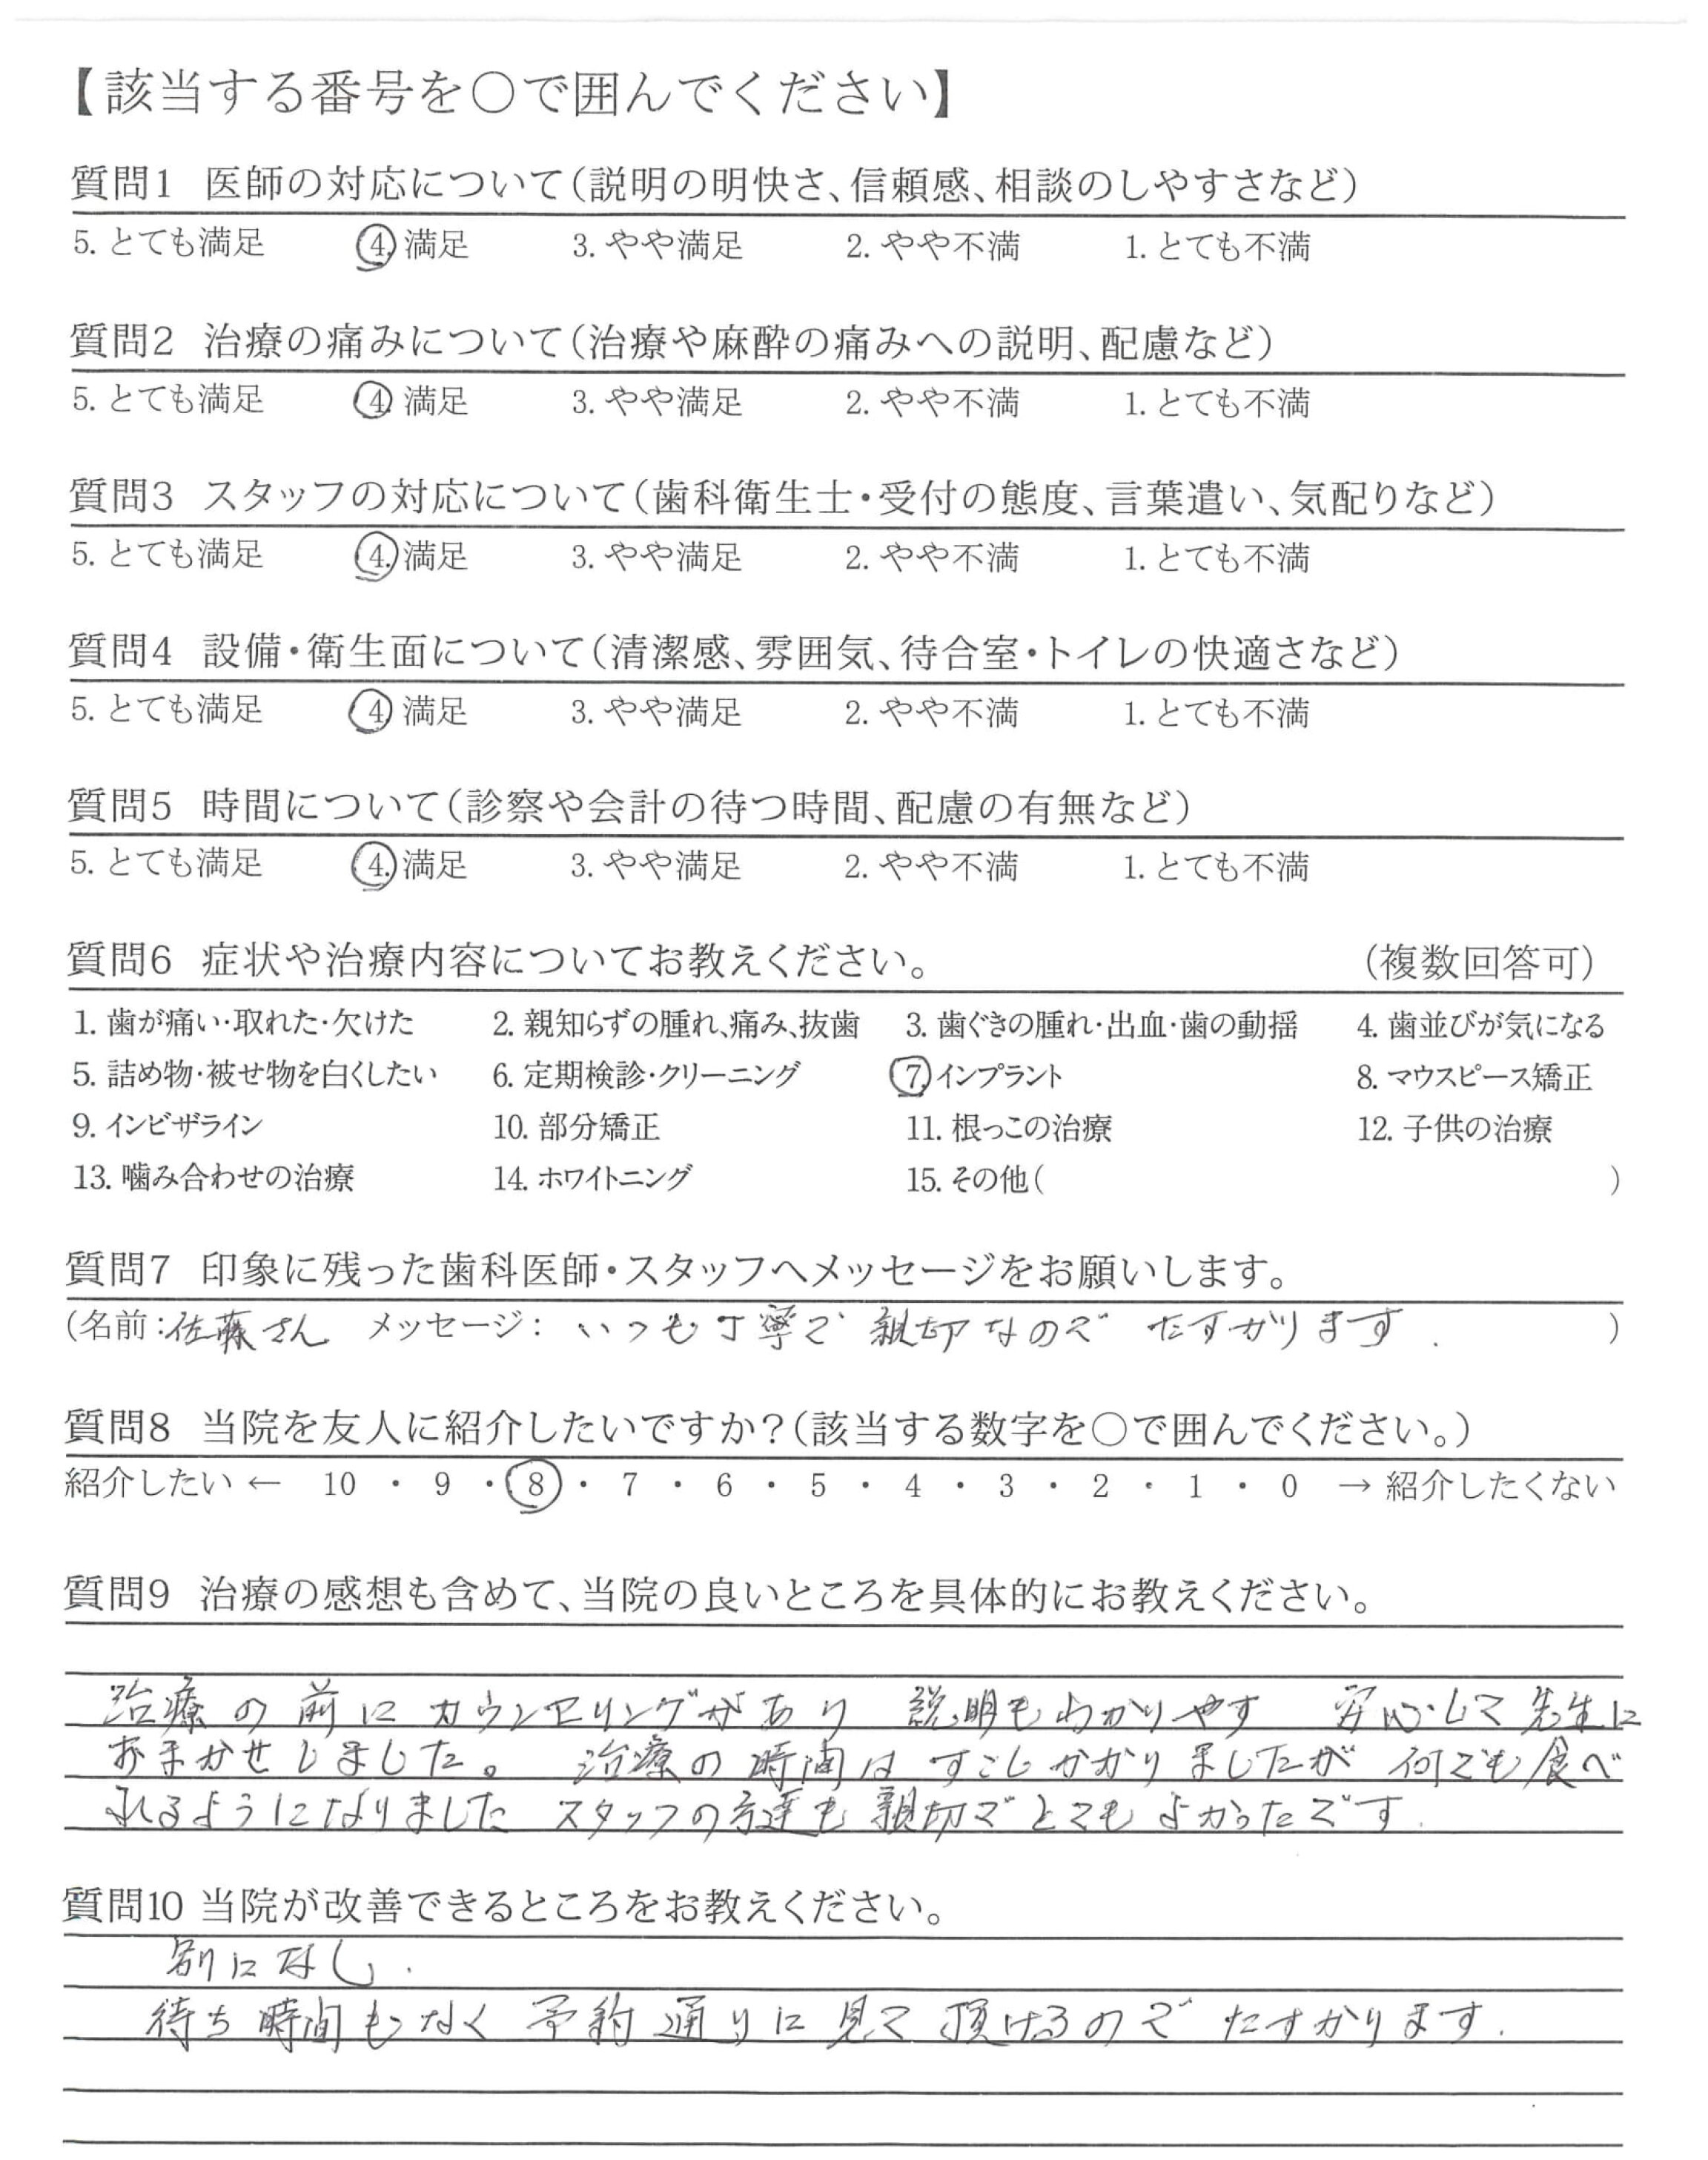 【該当する番号を○で囲んでください】
質問1 医師の対応について(説明の明快さ、信頼感、相談のしやすさなど)
5. とても満足 4. 満足 3. やや満足 2. やや不満 1. とても不満
質問2 治療の痛みについて(治療や麻酔の痛みへの説明、配慮など)
5. とても満足 4. 満足 3. やや満足 2. やや不満 1. とても不満
質問3 スタッフの対応について(歯科衛生士・受付の態度、言葉遣い、気配りなど)
5. とても満足 4. 満足 3. やや満足 2. やや不満 1. とても不満
質問4 設備・衛生面について(清潔感、雰囲気、待合室・トイレの快適さなど)
5. とても満足 4. 満足 3. やや満足 2. やや不満 1. とても不満
質問5 時間について(診察や会計の待つ時間、配慮の有無など)
5. とても満足 4. 満足 3. やや満足 2. やや不満 1. とても不満
質問6 症状や治療内容についてお教えください。 (複数回答可)
1. 歯が痛い・取れた・欠けた 2. 親知らずの腫れ、痛み、抜歯 3. 歯ぐきの腫れ・出血・歯の動揺 4. 歯並びが気になる
5. 詰め物・被せ物を白くしたい 6. 定期検診・クリーニング 7. インプラント 8. マウスピース矯正
9. インビザライン 10. 部分矯正 11. 根っこの治療 12. 子供の治療
13. 噛み合わせの治療 14. ホワイトニング 15. その他( )
質問7 印象に残った歯科医師・スタッフへメッセージをお願いします。
(名前:佐藤さん メッセージ: いつも丁寧で 親切なので たすかります. )
質問8 当院を友人に紹介したいですか?(該当する数字を○で囲んでください。)
紹介したい ← 10 ・ 9 ・ 8 ・ 7 ・ 6 ・ 5 ・ 4 ・ 3 ・ 2 ・ 1 ・ 0 → 紹介したくない
質問9 治療の感想も含めて、当院の良いところを具体的にお教えください。
治療の前にカウンセリングがあり 説明もわかりやす 安心して先生に
おまかせしました。 治療の時間はすこしかかりましたが 何でも食べ
れるようになりました スタッフの方達も親切でとてもよかったです.
質問10 当院が改善できるところをお教えください。
別になし.
待ち時間もなく 予約通りに見て頂けるので たすかります.